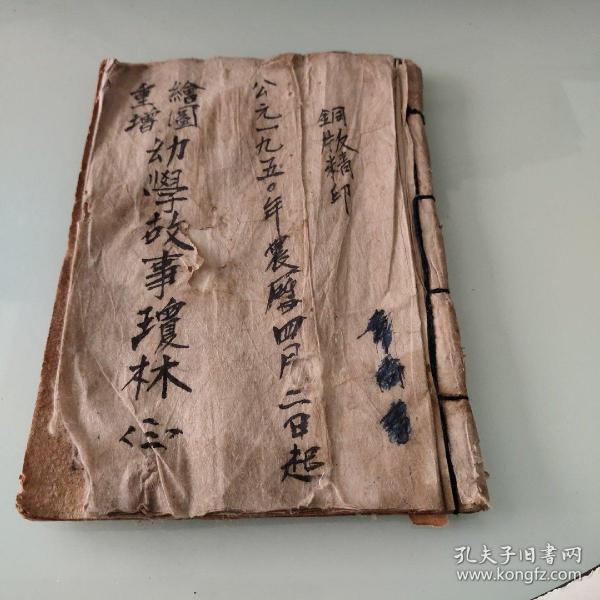 銅版精印
公元一九五〇年農曆四月二日起
繪圖
重增
幼學故事瓊林〈三〉
孔夫子旧書网
www.kongfz.com